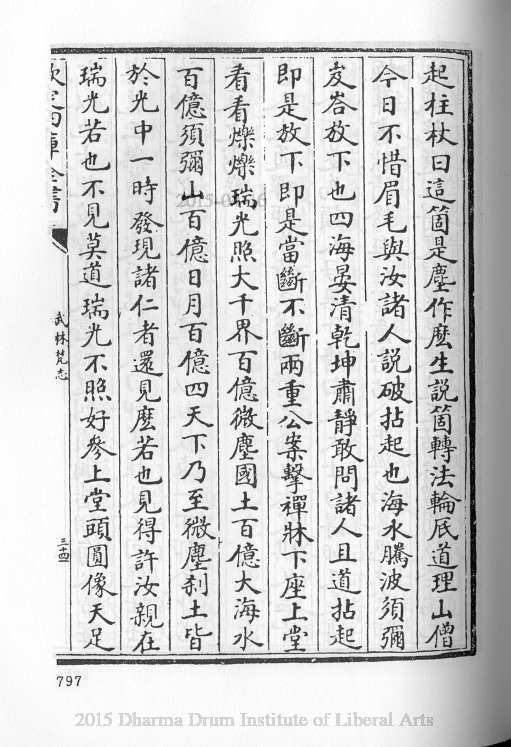 起柱杖曰這箇是塵作麽生説箇轉法輪底道理山僧
今日不惜眉毛與汝諸人説破拈起也海水騰波須彌
岌峇放下也四海晏清乾坤肅靜敢問諸人且道拈起
即是放下即是當斷不斷兩重公案擊禪牀下座上堂
看看爍爍瑞光照大千界百億微塵國土百億大海水
百億須彌山百億日月百億四天下乃至微塵刹土皆
於光中一時發現諸仁者還見麽若也見得許汝親在
瑞光若也不見莫道瑞光不照好參上堂頭圓像天足
欽定四庫全書
武林梵志
三十四
797
2015 Dharma Drum Institute of Liberal Arts